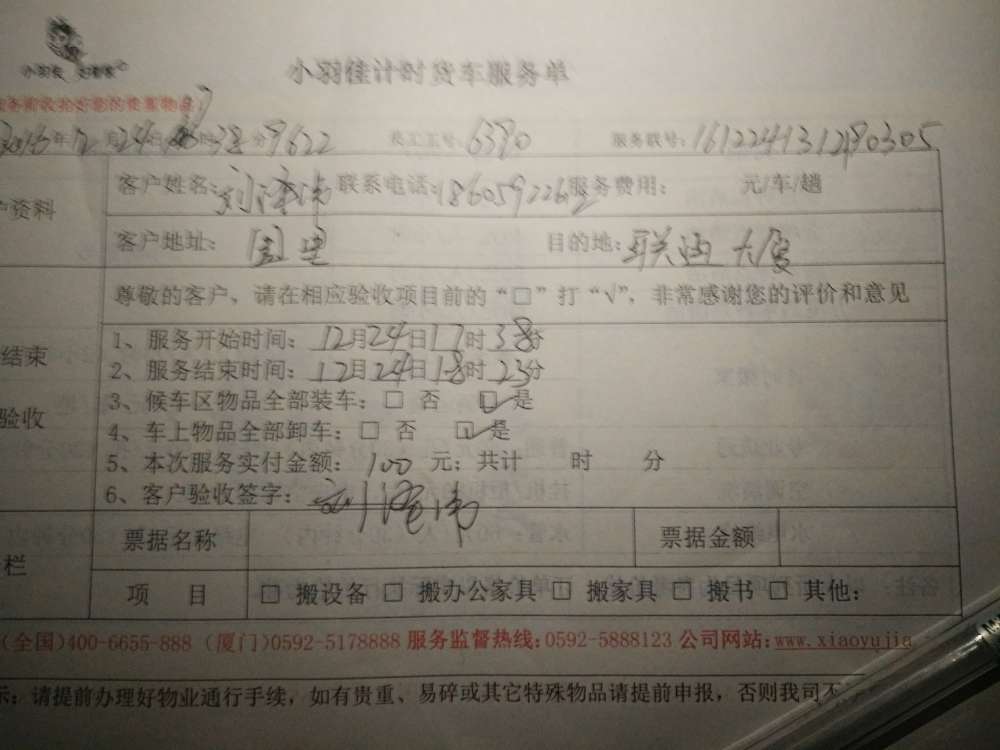 小羽佳计时货车服务单
2016年12月24日 时38分9622 员工工号:6390 服务联号:161224131290305
客户姓名:刘泽沛 联系电话: 服务费用: 元/车/趟
户资料
客户地址: 目的地:联通大厦
尊敬的客户、请在相应验收项目前的“□”打“√”,非常感谢您的评价和意见
1、服务开始时间:12月24日17时38分
结束
2、服务结束时间:12月24日18时23分
3、候车区物品全部装车:□ 否 ☑ 是
验收
4、车上物品全部卸车:□ 否 ☑ 是
5、本次服务实付金额:100 元;共计 时 分
6、客户验收签字:刘泽沛
票据名称 票据金额
栏
项 目 □ 搬设备 □ 搬办公家具 □ 搬家具 □ 搬书 □ 其他:
(全国)400-6655-888 (厦门)0592-5178888 服务监督热线:0592-5888123 公司网站:www.xiaoyujia
示:请提前办理好物业通行手续,如有贵重、易碎或其它特殊物品请提前申报,否则我司不